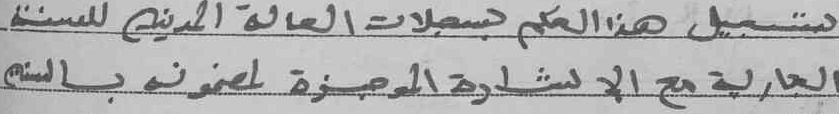 بتسجيل هذا الحكم بسجلات الحالة المدنية للسنة
الجارية مع الإشارة الموجزة لمضمونه بالسنة